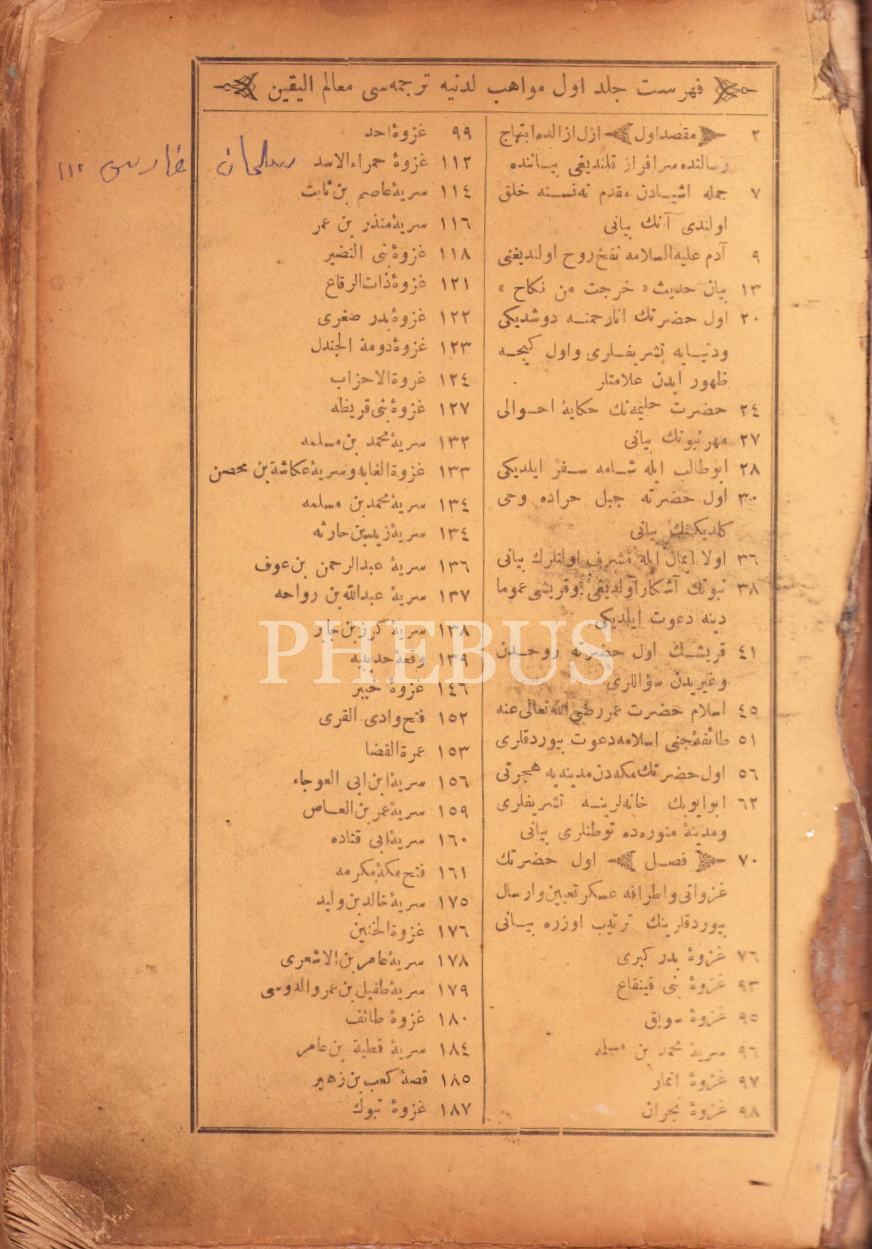 فهرست جلد اول مواهب لدنیه ترجمه‌سی معالم الیقین
٢ مقصد اول ازل ازالده ابتهاج
رسالتده سرافراز قلندیغی بیاننده
٧ جمله اشیادن مقدم نه نسنه خلق
اولندی آنك بیانی
٩ آدم علیه السلامه نفخ روح اولندیغی
١٣ بیان حدیث « خرجت من نكاح »
٢٠ اول حضرتك انارحمنه دوشدیكی
ودنیایه تشریفلری واول كیجه
ظهور ایدن علامتلر
٢٤ حضرت حلیمه‌نك حكایهٔ احوالی
٢٧ مهر نبوتك بیانی
٢٨ ابوطالب ایله شامه سفر ایلدیكی
٣٠ اول حضرته جبل حراده وحی
كلدیكنك بیانی
٣٦ اولا ایمان ایله مشرف اولنلرك بیانی
٣٨ نبوتك آشكار اولدیغی وقریشی عموما
دینه دعوت ایلدیكی
٤١ قریشك اول حضرته روحدن
وغیریدن سؤاللری
٤٥ اسلام حضرت عمر رضی الله تعالی عنه
٥١ طائفهٔ جنی اسلامه دعوت بیوردقلری
٥٦ اول حضرتك مكه‌دن مدینه‌یه هجرتی
٦٢ ابو ایوبك خانه‌لرینه تشریفلری
ومدینهٔ منوره‌ده توطنلری بیانی
٧٠ فصل اول حضرتك
غزواتی واطرافه عسكر تعیین وارسال
بیوردقلرینك ترتیب اوزره بیانی
٧٦ غزوهٔ بدر كبری
٩٣ غزوهٔ بنی قینقاع
٩٥ غزوهٔ سویق
٩٦ سریهٔ محمد بن مسلمه
٩٧ غزوهٔ انمار
٩٨ غزوهٔ نجران
٩٩ غزوهٔ احد
١١٢ غزوهٔ حمراء الاسد
سلمان فارسی ١١٢
١١٤ سریهٔ عاصم بن ثابت
١١٦ سریهٔ منذر بن عمر
١١٨ غزوهٔ بنی النضیر
١٢١ غزوهٔ ذات الرقاع
١٢٢ غزوهٔ بدر صغری
١٢٣ غزوهٔ دومة الجندل
١٢٤ غزوة الاحزاب
١٢٧ غزوهٔ بنی قریظه
١٣٢ سریهٔ محمد بن مسلمه
١٣٣ غزوة الغابه وسریهٔ عكاشة بن محصن
١٣٤ سریهٔ محمد بن مسلمه
١٣٤ سریهٔ زید بن حارثه
١٣٦ سریهٔ عبد الرحمن بن عوف
١٣٧ سریهٔ عبد الله بن رواحه
١٣٨ سریهٔ كرز بن جابر
١٣٩ وقعهٔ حدیبیه
١٤٦ غزوهٔ خیبر
١٥٢ فتح وادی القری
١٥٣ عمرة القضا
١٥٦ سریهٔ ابن ابی العوجاء
١٥٩ سریهٔ عمر بن العاص
١٦٠ سریهٔ ابی قتاده
١٦١ فتح مكهٔ مكرمه
١٧٥ سریهٔ خالد بن ولید
١٧٦ غزوة الحنین
١٧٨ سریهٔ عامر بن الاشعری
١٧٩ سریهٔ طفیل بن عمر والدوسی
١٨٠ غزوهٔ طائف
١٨٤ سریهٔ قطبة بن عامر
١٨٥ قصهٔ كعب بن زهیر
١٨٧ غزوهٔ تبوك
PHEBUS